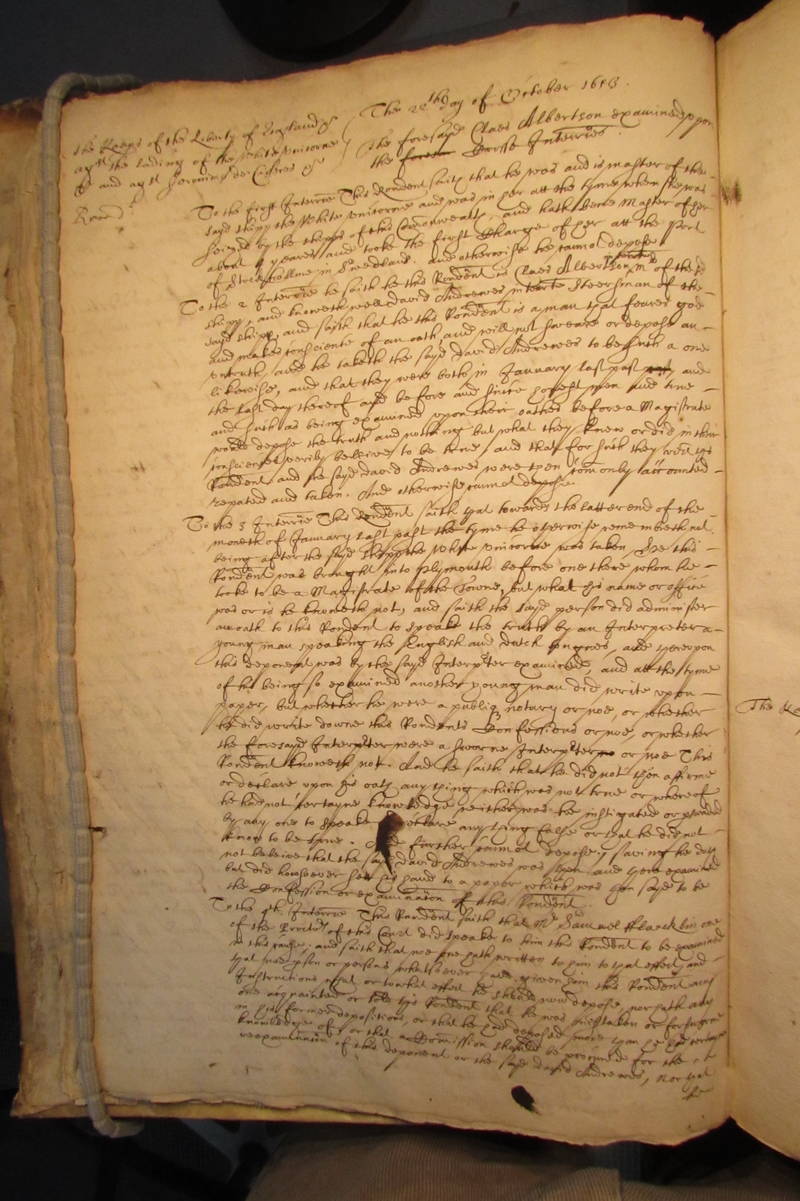 The 22th day of October 1653.
The Keeps of the Liberty of England &c
agt the lading of the white Unicorne
& and agt Jeronimo de
The foresayd Claes Albertson examined upon
the Crosse Interries.
To the first Interrie This Rendent saith that he was and is master of the
sayd shipp the White Unicorne and was in her att the tyme when she was
seized by the shipps of this Commonwealth, and hath bene Master of her
about 4 yeares and tooke the first Charge of her att the Port
of in Sweedland. and otherwise he cannot depose.
To the 2 Interrie he saith he this Rendent is Claes Albertson Mr of the sd
shipp, and knoweth well David Andrewes Steersman of the
sayd shipp, and saith that he this Rendent is a man that feares god
and makes conscience of an oath, and will not sweare or depose an
untruth, and he taketh the sayd David Andrewes to be such a one
likewise, and that they were both in January last past and
the last day thereof and before and since honest men and true
and such as being examined upon their oathes before a Magistrate
would depose the truth and nothing but what they knew or did in their
consciences verily beleive to be true, and that for such they both this
Rendent and the sayd David Andrewes were then commonly accounted
reputed and taken. And otherwise cannot depose.
To the 3 Interrie This Rendent saith that towards the latter end of the
moneth of January last past the tyme he otherwise remembreth not
being after the sayd shipp the White Unicorne was taken, he this
Rendent was brought into Plymouth before one there whom he
tooke to be a Magistrate of the Towne, but what his name or office
was or is he knoweth not, and saith the sayd person did administer
an oath to this Rendent to speake the truth by an Interpreter a
young man speaking the English and dutch tongues, and thereupon
this deponent was by the sayd Interpreter examined, and att the tyme
of his being so examined another young man did write upon
paper, but whether he were a publiq notary or noe, or whether
he did write downe this Rendents Confessions or noe, or whether
the foresayd Interpreter were a sworne Interpreter or noe This
Rendent knoweth not. And he saith that he did not then affirme
or declare upon his oath any thing which was not true or whereof
he had not certayne knowledge, neither was he instigated or
by any one to speake or declare any thing false or that he did not
know to be true. And further cannot depose, saving he doth
not beleive that the sayd David Andrewes was then and there examined
but did howsoever sett his hand to a paper which was then sayd to be
the Confession or examination of this Rendent.
To the 4th. Interrie This Rendent saith that Mr Samuel Francklin one
of the of this Court did speake to him this Rendent to be examined
in this cause, and saith that noe one hath written to him to that effect, and
that noe pson or persons whatsoever have given him this Rendent any
Instructions to what effect he should now depose, nor hath any
one or told this Rendent that he was mistaken or
in his former depositions, or that he had deposed more than he had certaine
knowledge of, or that a Commission should be procured for the
reexamination of this deponent or the sayd david Andrewes, nor that
The